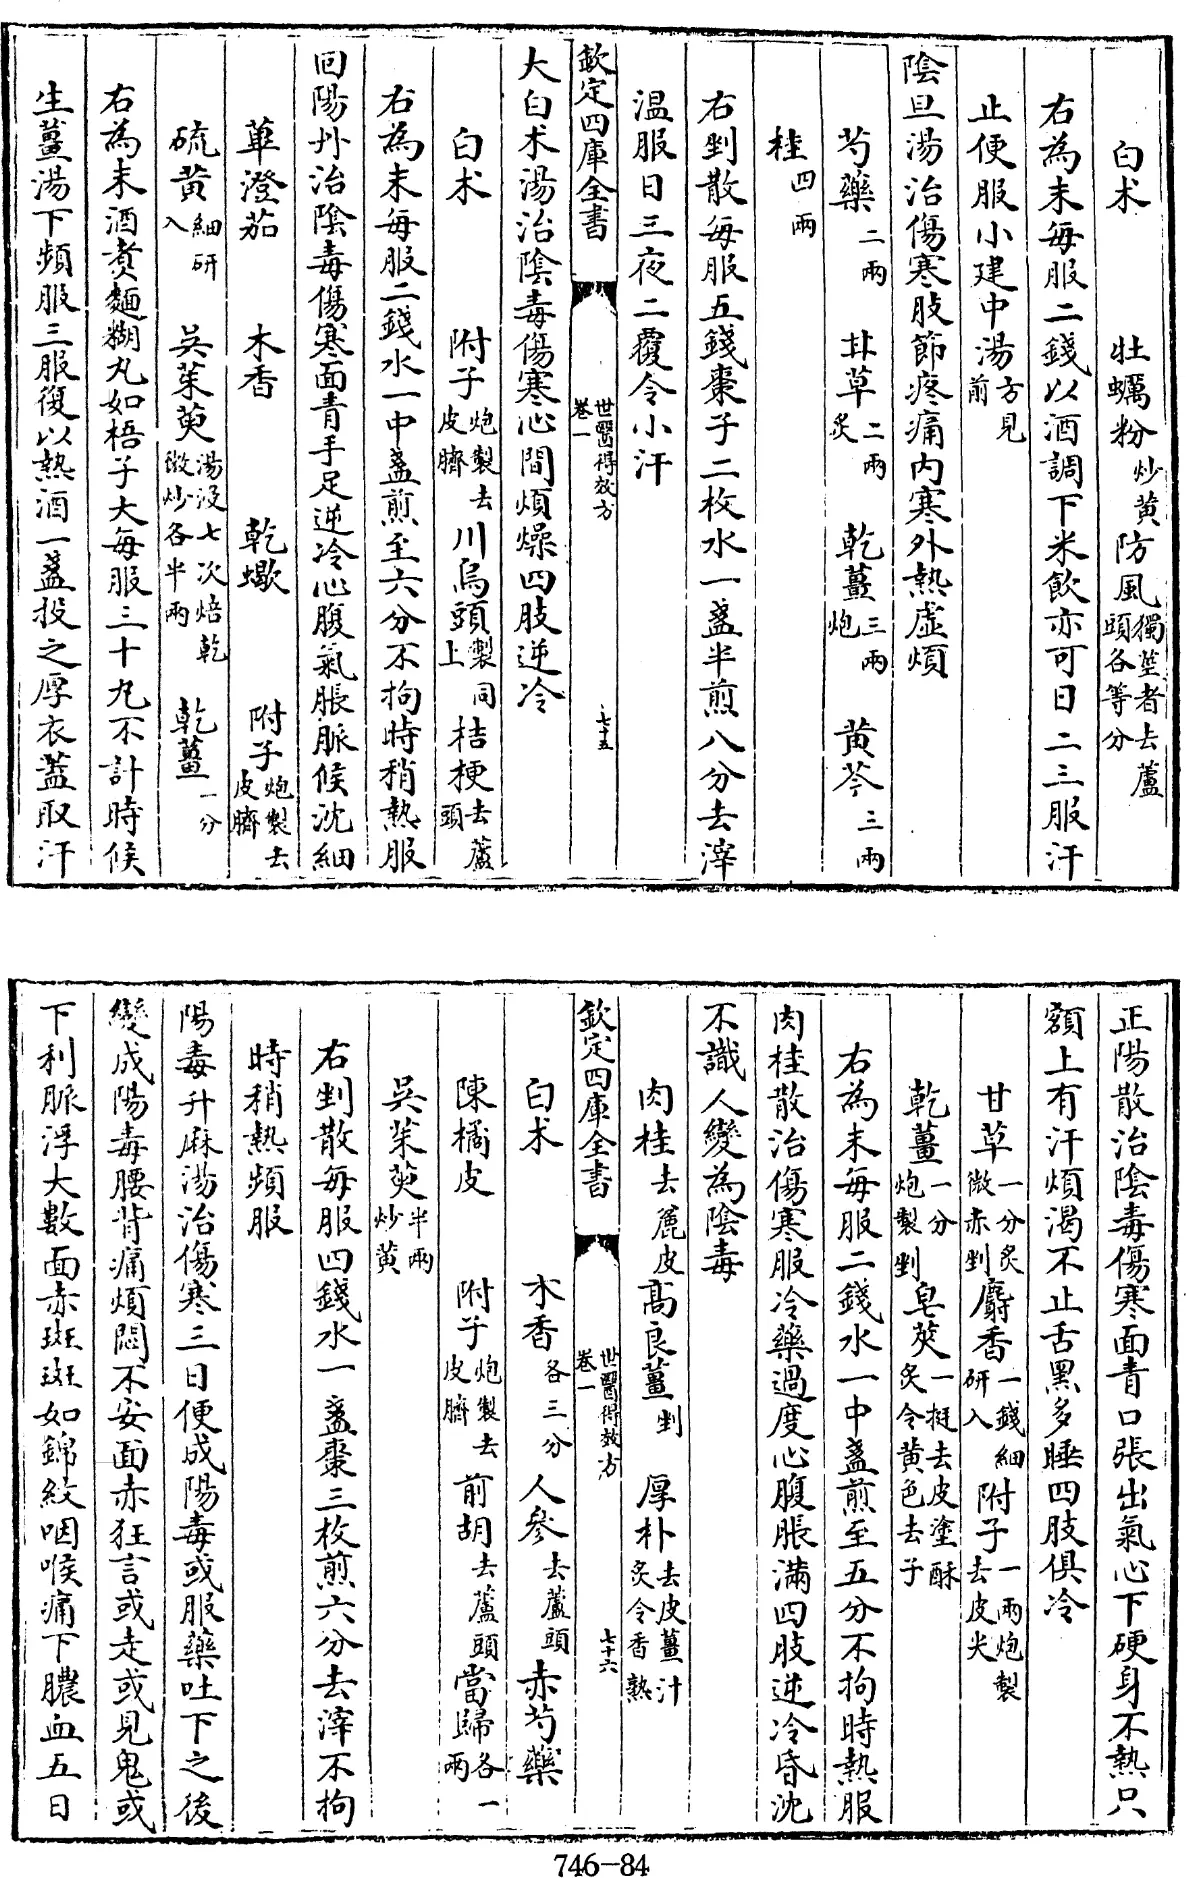 白术　牡蠣粉炒黄　防風獨莖者去蘆頭各等分
右為末每服二錢以酒調下米飲亦可日二三服汗
止便服小建中湯方見前
陰旦湯治傷寒肢節疼痛内寒外熱虚煩
芍藥二兩　甘草二兩炙　乾薑三兩炮　黄芩三兩
桂四兩
右剉散每服五錢棗子二枚水一盞半煎八分去滓
温服日三夜二覆令小汗
欽定四庫全書　世醫得效方卷一　七十五
大白术湯治陰毒傷寒心間煩燥四肢逆冷
白术　附子炮製去皮臍　川烏頭製同上　桔梗去蘆頭
右為末每服二錢水一中盞煎至六分不拘時稍熱服
回陽丹治陰毒傷寒面青手足逆冷心腹氣脹脈候沈細
蓽澄茄　木香　乾蠍　附子炮製去皮臍
硫黄細研入　吳茱萸湯浸七次焙乾微炒各半兩　乾薑一分
右為末酒煑麵糊丸如梧子大每服三十丸不計時候
生薑湯下頻服三服復以熱酒一盞投之厚衣蓋取汗
正陽散治陰毒傷寒面青口張出氣心下硬身不熱只
額上有汗煩渴不止舌黑多睡四肢俱冷
甘草一分炙微赤剉　麝香一錢細研入　附子一兩炮製去皮尖
乾薑一分炮製剉　皂莢一挺去皮塗酥炙令黄色去子
右為末每服二錢水一中盞煎至五分不拘時熱服
肉桂散治傷寒服冷藥過度心腹脹滿四肢逆冷昏沈
不識人變為陰毒
肉桂去麄皮　高良薑剉　厚朴去皮薑汁炙令香熟
欽定四庫全書　世醫得效方卷一　七十六
白术　木香各三分　人參去蘆頭　赤芍藥
陳橘皮　附子炮製去皮臍　前胡去蘆頭　當歸各一兩
吳茱萸半兩炒黄
右剉散每服四錢水一盞棗三枚煎六分去滓不拘
時稍熱頻服
陽毒升麻湯治傷寒三日便成陽毒或服藥吐下之後
變成陽毒腰背痛煩悶不安面赤狂言或走或見鬼或
下利脈浮大數面赤斑斑如錦紋咽喉痛下膿血五日
746-84